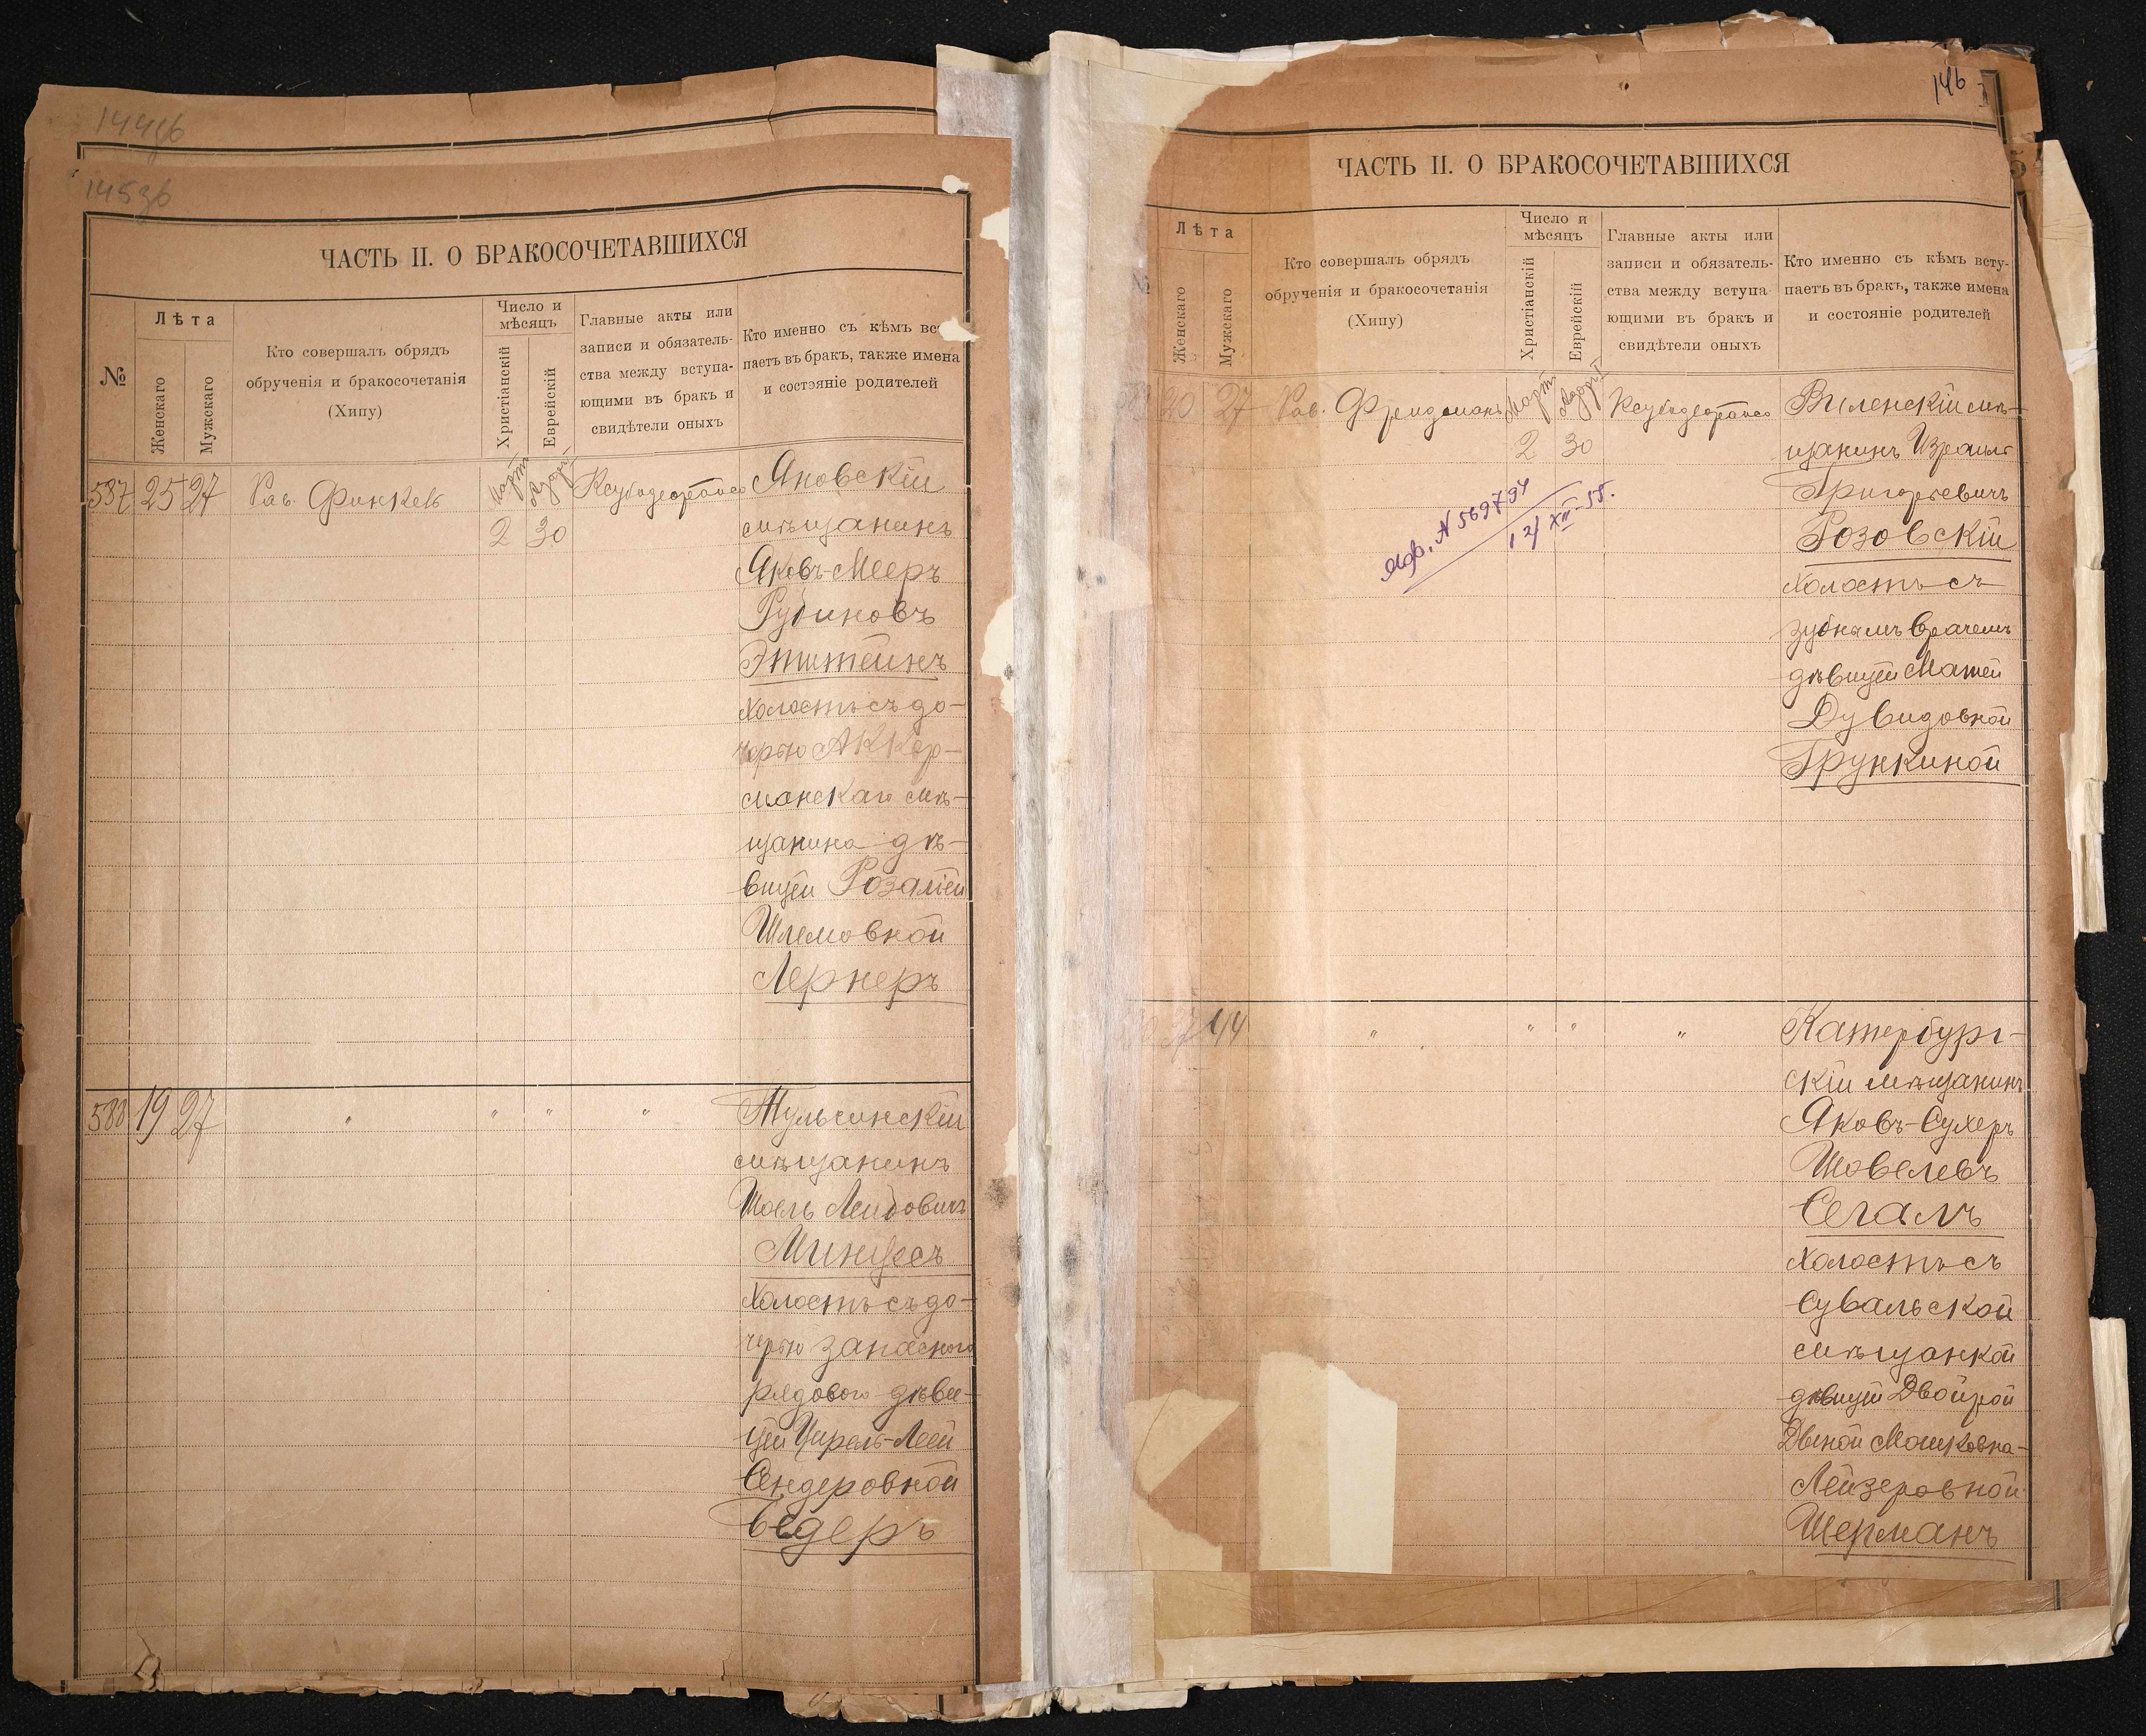 ЧАСТЬ II. О БРАКОСОЧЕТАВШИХСЯ
№
Лѣта
Женскаго
Мужскаго
Кто совершалъ обрядъ
обрученія и бракосочетанія
(Хипу)
Число и
мѣсяцъ
Христіанскій
Еврейскій
Главные акты или
записи и обязатель-
ства между вступа-
ющими въ бракъ и
свидѣтели оныхъ
Кто именно съ кѣмъ всту
паетъ въ бракъ, также имена
и состояніе родителей
587 25 27 Рав. Финкель Март 2 30
Яновскій
мѣщанинъ
Яковъ-Мееръ
Рубиновъ
Эпштейнъ
холостъ съ до-
черью Аккер-
манскаго мѣ-
щанина дѣ-
вицей Розаліей
Шлемовной
Лернеръ
588 19 27 " " " "
Тульчинскій
мѣщанинъ
Шоель Лейбовичъ
Минцесъ
холостъ съ до-
черью запасного
рядового дѣви-
цей Цирель-Леей
Сендеровной
Бедеръ
146
ЧАСТЬ II. О БРАКОСОЧЕТАВШИХСЯ
№
Лѣта
Женскаго
Мужскаго
Кто совершалъ обрядъ
обрученія и бракосочетанія
(Хипу)
Число и
мѣсяцъ
Христіанскій
Еврейскій
Главные акты или
записи и обязатель-
ства между вступа
ющими въ бракъ и
свидѣтели оныхъ
Кто именно съ кѣмъ всту-
паетъ въ бракъ, также имена
и состояніе родителей
20 27 Рав. Фридманъ Март 2 30
Виленскій мѣ-
щанинъ Израиль
Григорьевичъ
Розовскій
холостъ съ
зубнымъ врачемъ
дѣвицей Матей
Дувидовной
Трункиной
N 569794
12/XII-55.
44 " " " "
Катербург-
скій мѣщанинъ
Яковъ-Сухеръ
Шовелевъ
Сегалъ
холостъ съ
Сувальской
мѣщанкой
дѣвицей Двойрой
Двеной Мошковна-
Лейзеровной
Шерманъ